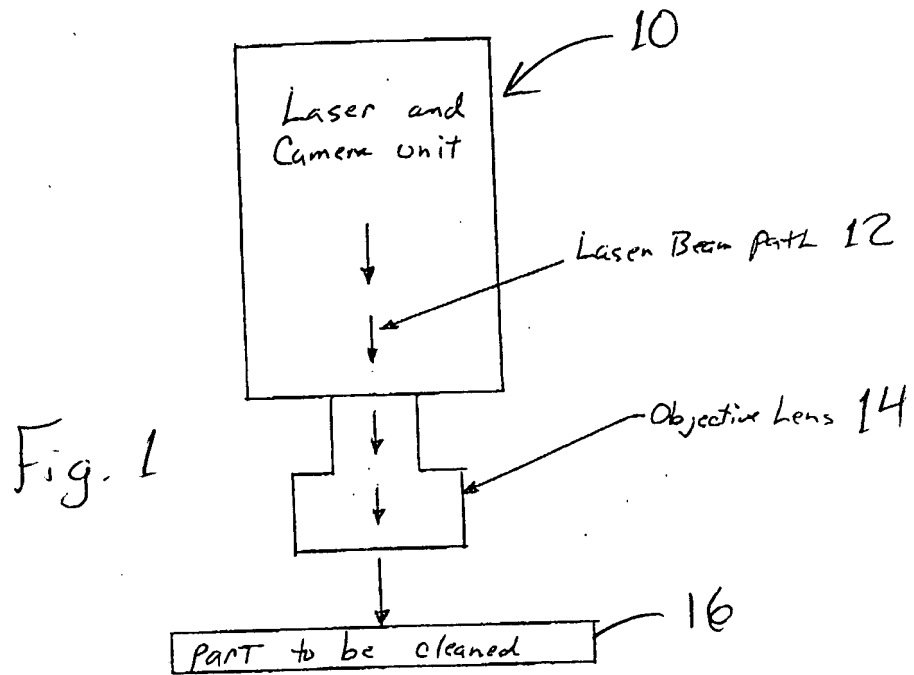 10
Laser and
Camera unit
Laser Beam path 12
Objective Lens 14
Fig. 1
16
part to be cleaned